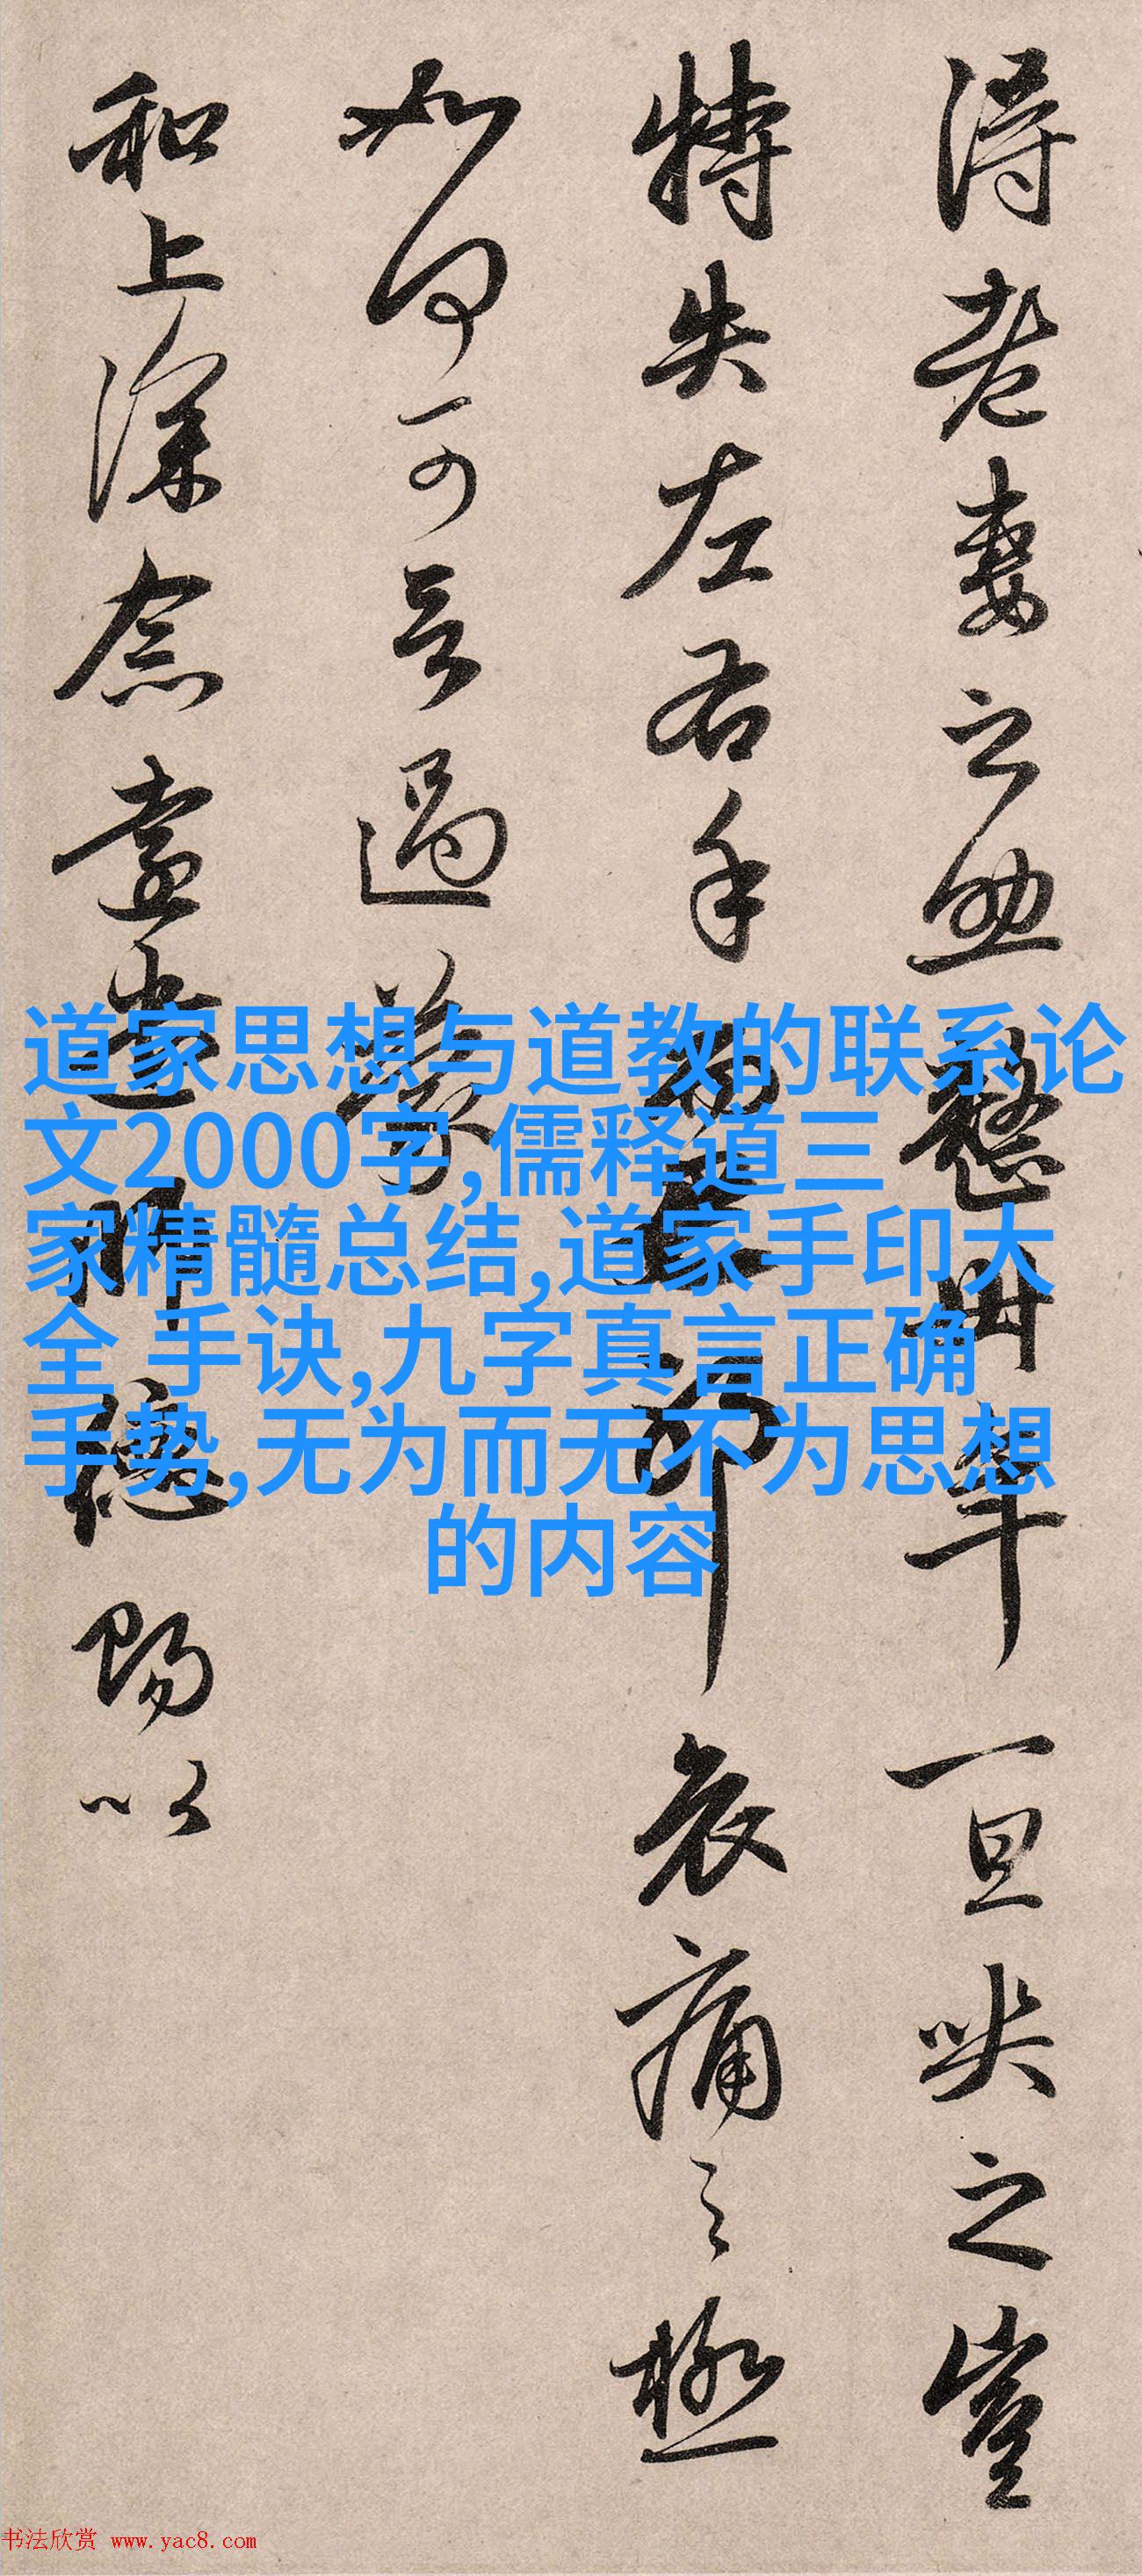 得老妻之助整卅年一旦哭之豈
特失左右手而已耶哀痛之極
如何可言過蒙
和上深念遠遣師德賜以
道家思想与道教的联系论
文2000字,儒释道三
家精髓总结,道家手印大
全 手诀,九字真言正确
手势,无为而无不为思想
的内容
书法欣赏 www.yac8.com